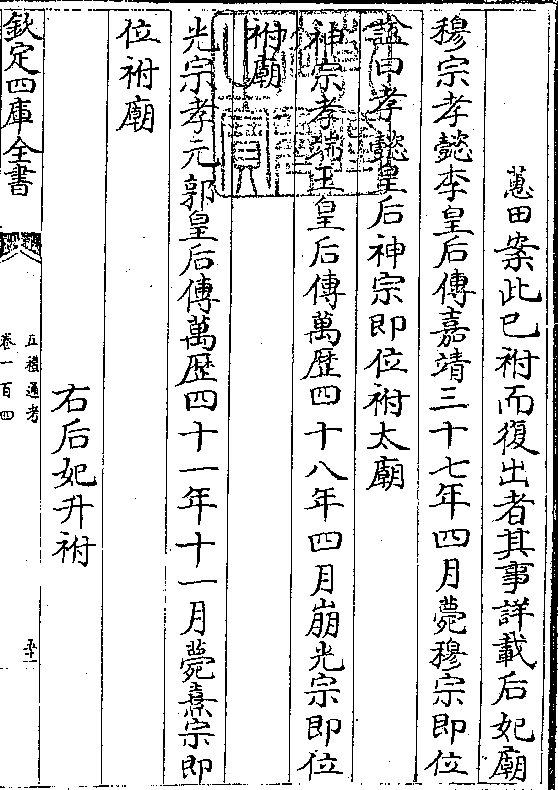 蕙田案此已祔而復出者其事詳載后妃廟
穆宗孝懿李皇后傳嘉靖三十七年四月薨穆宗即位
諡曰孝懿皇后神宗即位祔太廟
神宗孝端王皇后傳萬歴四十八年四月崩光宗即位
祔廟
光宗孝元郭皇后傳萬歴四十一年十一月薨熹宗即
位祔廟
右后妃升祔
欽定四庫全書
五禮通考
卷一百四